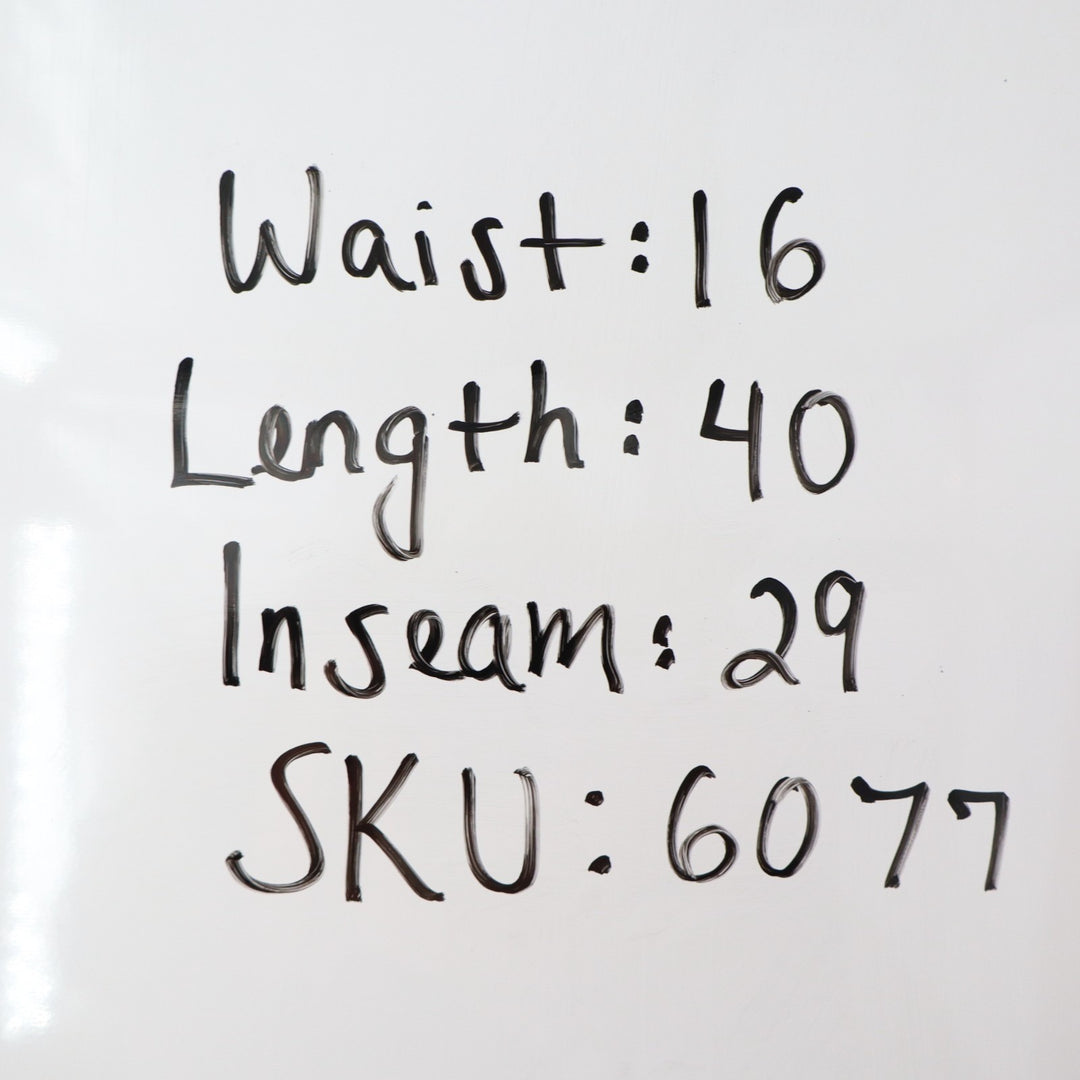 Waist: 16
Length: 40
Inseam: 29
SKU: 6077